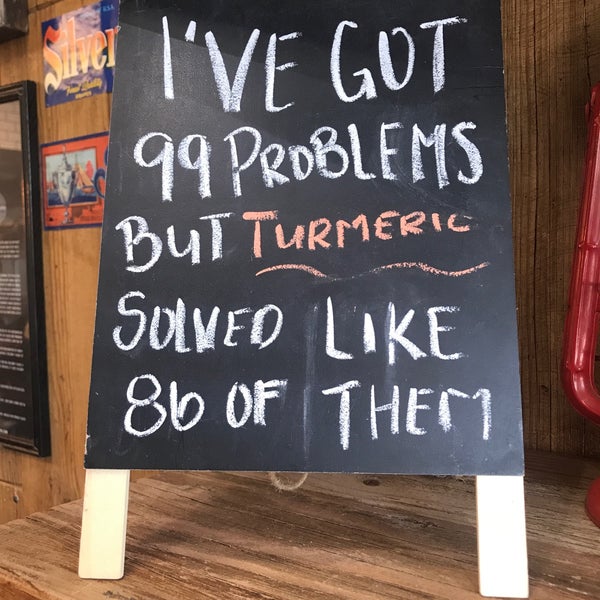 I'VE GOT
99 PROBLEMS
BUT TURMERIC
SOLVED LIKE
86 OF THEM
Silver